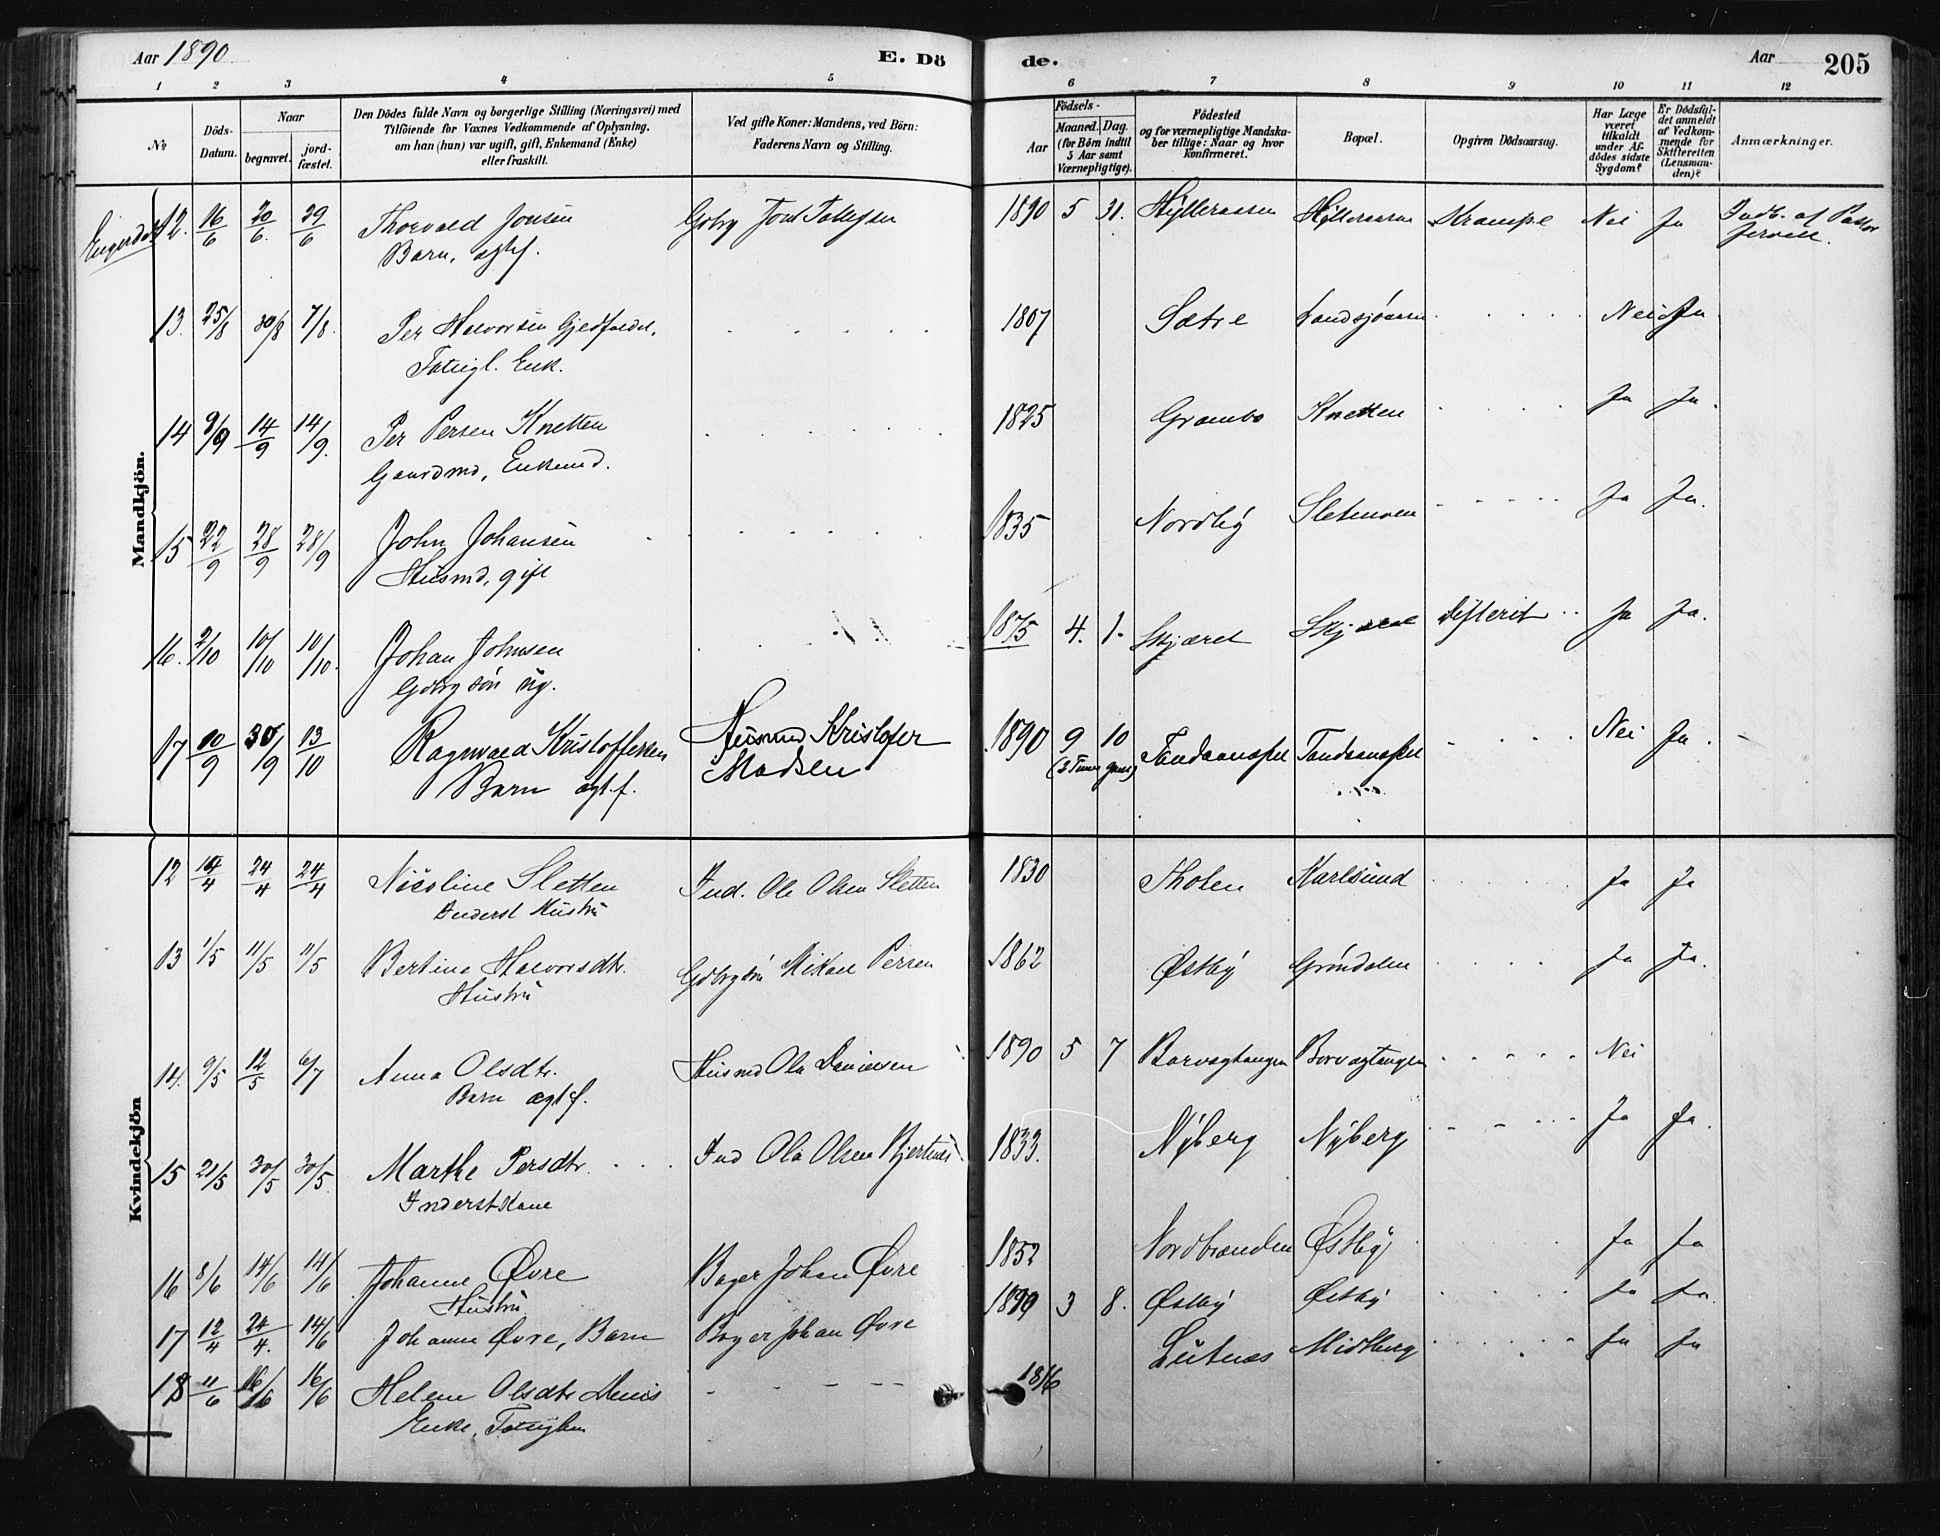 Aar 1890 E. Dö de. Aar 205
1 2 3 4 5 6 7 8 9 10 11 12
№
Döds-Datum.
Naar
begravet.
jord-fæstet.
Den Dödes fulde Navn og borgerlige Stilling (Næringsvei) med
Tilföiende for Voxnes Vedkommende af Oplysning,
om han (hun) var ugift, gift, Enkemand (Enke)
eller fraskilt.
Ved gifte Koner: Mandens, ved Börn:
Faderens Navn og Stilling.
Födsels-
Aar
Maaned. Dag.
(for Börn indtil
5 Aar samt
Værnepligtige).
Födested
og for værnepligtige Mandska-
ber tillige: Naar og hvor
konfirmeret.
Bopæl.
Opgiven Dödsaarsag.
Har Læge
været
tilkaldt
under Af-
dödes sidste
Sygdom?
Er Dödsfal-
det anmeldt
af Vedkom-
mende for
Skifteretten
(Lensman-
den)?
Anmærkninger.
Mandkjön.
12. 16/6 20/6. 29/6 Thorvald Jonsen 1890 5 31. Hylleraasen Hylleraasen Krampe Nei Ja Indb. af Pastor
Barn, ægtef. Jervell.
13. 25/8 30/8 7/8. Per Halvorsen 1807 Sætre Landsjöaasen Nei Ja
Fattigl. Enk.
14 9/9 14/9 14/9. Per Persen Knetten 1825 Grambo Knetten Ja Ja.
Gaardmd, Enkemd.
15 22/9 28/9 28/9 John Johansen 1835 Nordby Sletmoen Ja Ja.
Husmd, gift
16. 2/10 10/10 10/10. Johan Johnsen 1875 4. 1. Skjæret Difterit Ja Ja.
Gdbrgsön ug.
17 10/9 30/9 13/10 Ragnvald Kristoffersen Husmd Kristofer 1890 9 10 Nei Ja.
Barn ægtef. Madsen
Kvindekjön
12 14/4 24/4 24/4 Nicoline Sletten Ind. Ole Olsen Sletten 1830 Thoten Karlsund Ja Ja
Inderst Hustru
13 1/5 11/5 11/5 Bertine Halvorsdtr. Mikael Persen 1862 Østby Gröndalen Ja Ja.
Hustru
14. 9/5 12/5 6/7 Anna Olsdtr. Husmd Ola 1890 5 7 Borvagtangen Borvagtangen Nei
Barn ægtef.
15 21/5 30/5 30/5. Marthe Persdtr. Ind Ola Olsen 1833. Nyberg Nyberg Ja Ja.
Inderstkone
16 8/6 14/6 14/6 Johanne Øvre Bager Johan Øvre 1852 Nordbrænden Østby Ja Ja
Hustru
17 12/4 24/4. 14/6 Johanne Øvre, Barn Bager Johan Øvre 1890 3 8. Østby Østby Ja Ja.
18 11/6 16/6 16/6 Helene Olsdtr 1816 Lutnæs Midtberg Ja Ja
Enke,